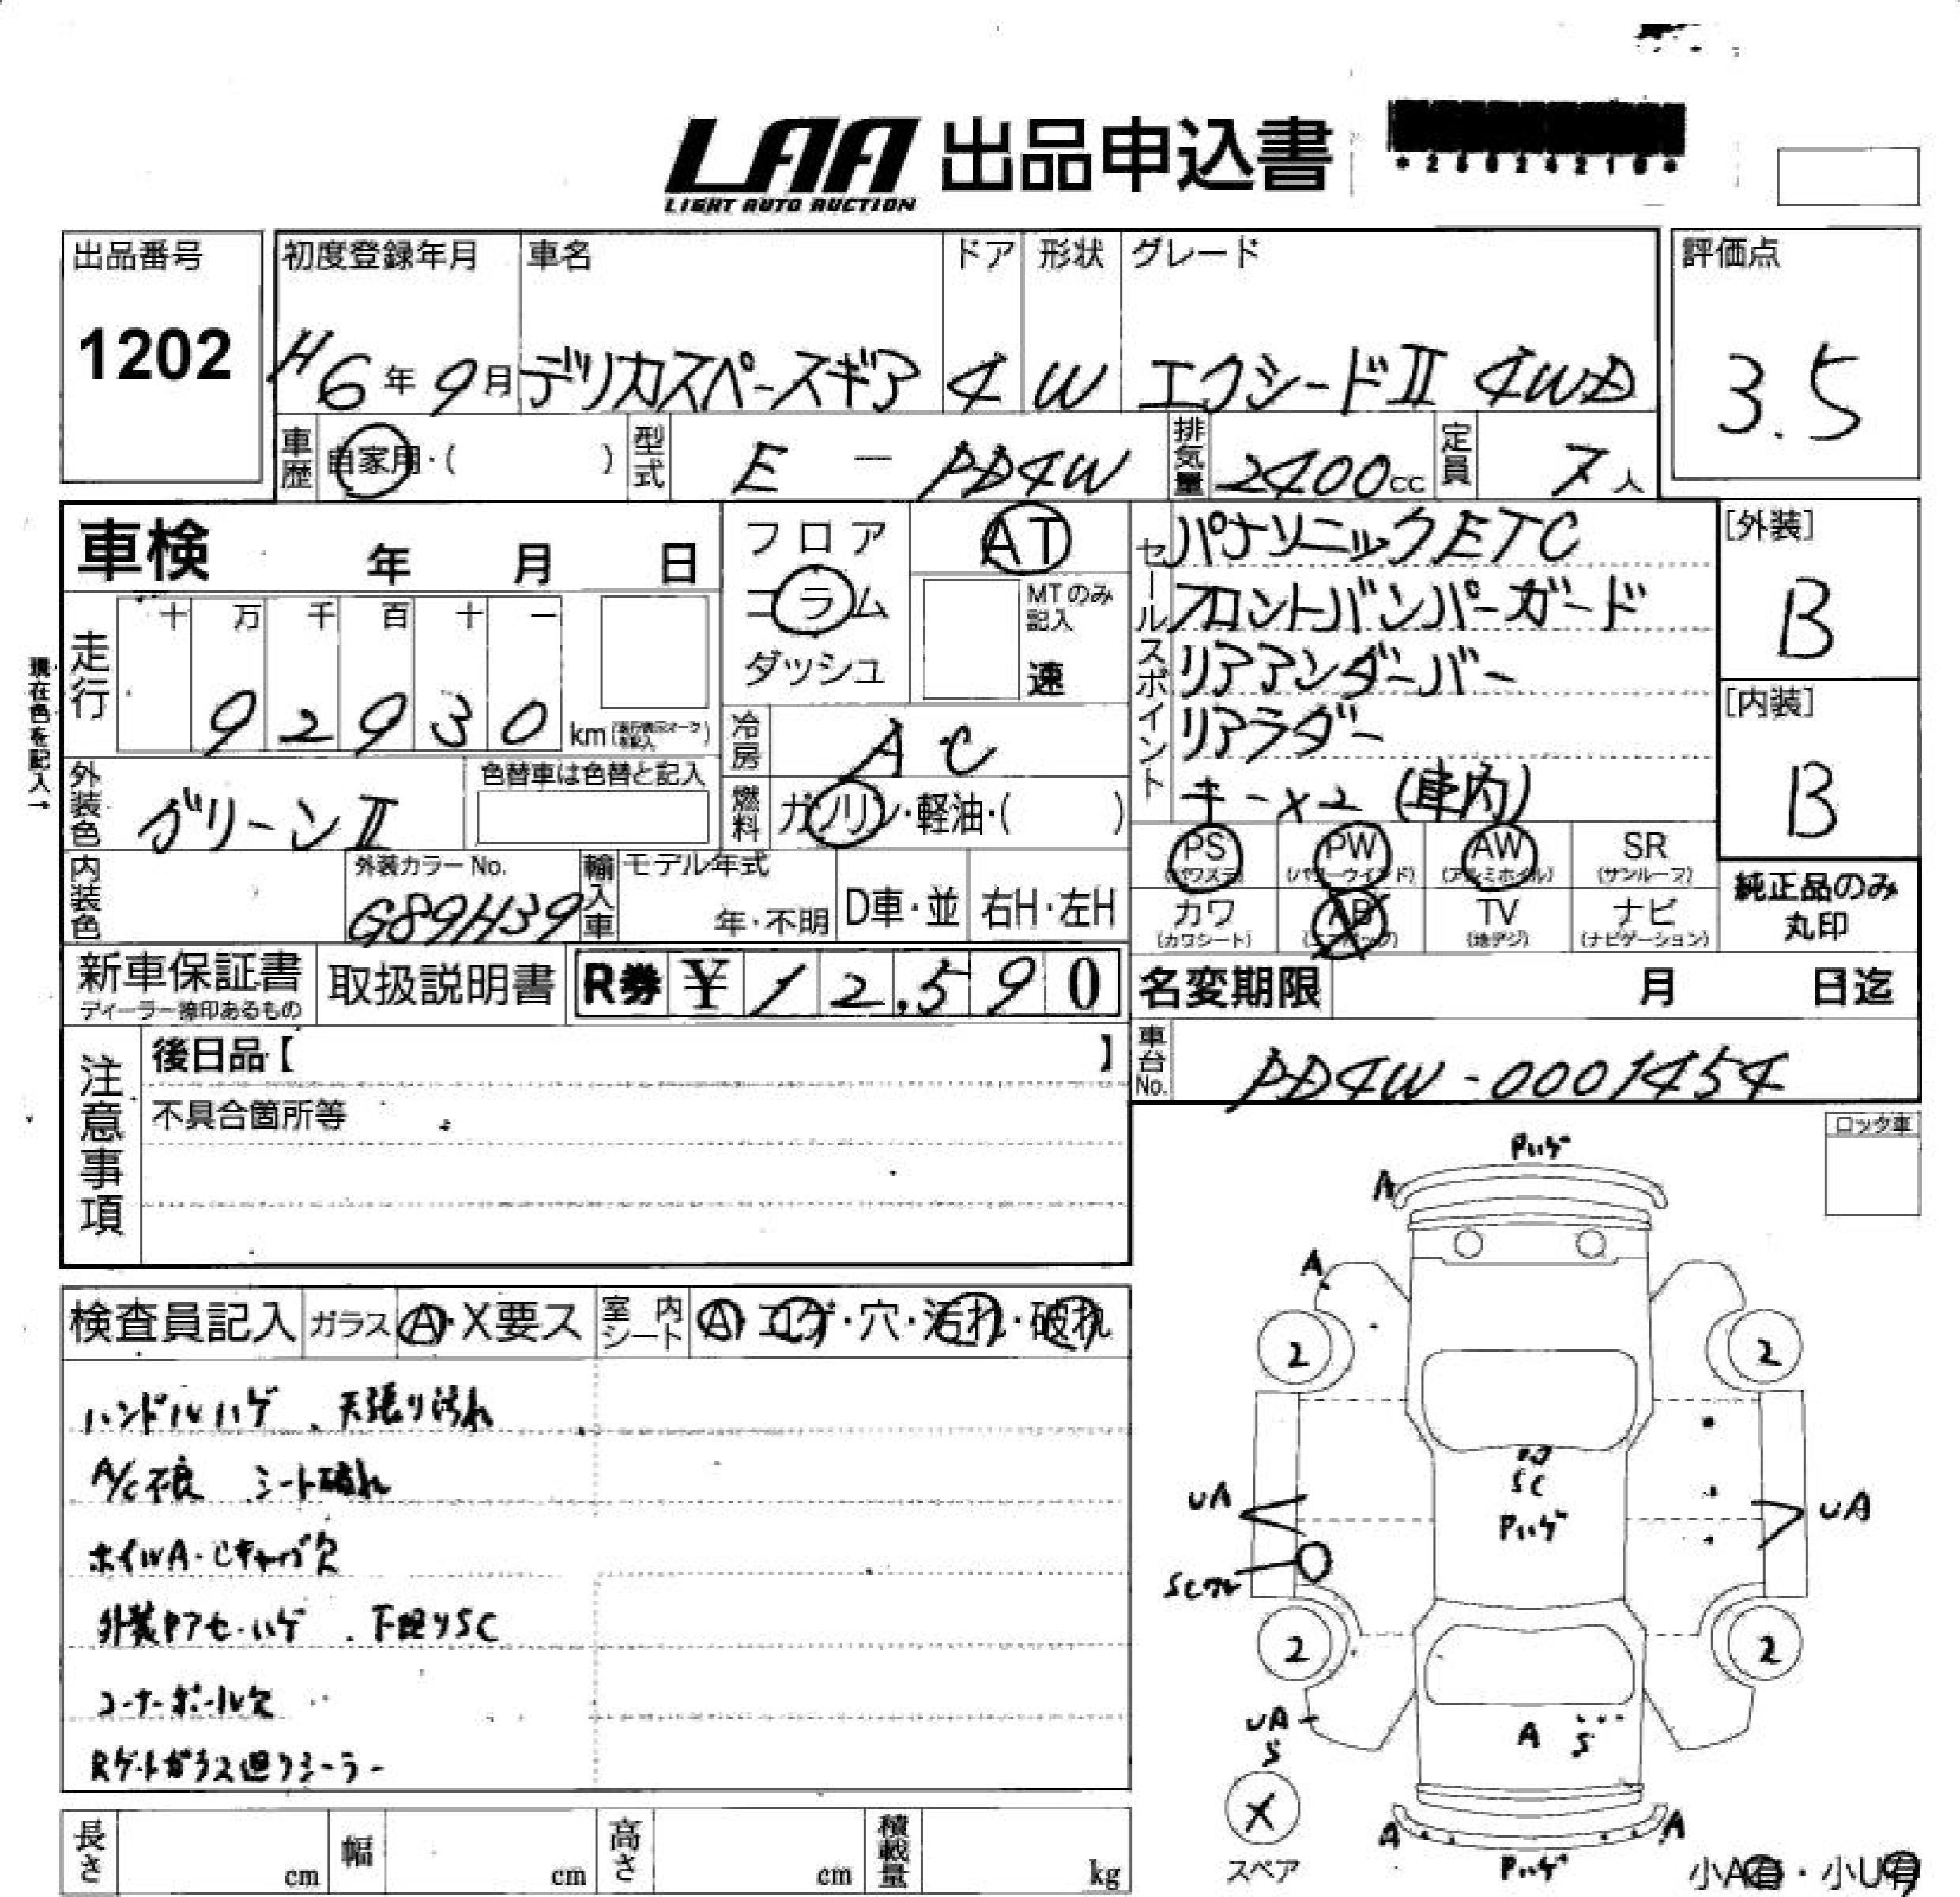 LAA 出品申込書
LIGHT AUTO AUCTION
出品番号
1202
初度登録年月
H6年9月
車名
デリカスペースギア
ドア
4
形状
W
グレード
エクシードⅡ 4WD
評価点
3.5
車歴 自家用・( )
型式 E - PD4W
排気量 2400cc
定員 7人
車検 年 月 日
フロア
コラム
ダッシュ
AT
MTのみ
記入
速
セールスポイント
パナソニックETC
フロントバンパーガード
リアアンダーバー
リアラダー
キー×2 (車内)
[外装]
B
[内装]
B
現在色を記入→
走行
十 万 千 百 十 一
9 2 9 3 0 km
冷房 AC
外装色 グリーンⅡ
色替車は色替と記入
燃料 ガソリン・軽油・( )
PS
(パワステ)
PW
(パワーウインド)
AW
(アルミホイル)
SR
(サンルーフ)
カワ
(カワシート)
AB
(エアバッグ)
TV
(地デジ)
ナビ
(ナビゲーション)
純正品のみ
丸印
内装色
外装カラーNo.
G89H39
輸入車
モデル年式
年・不明
D車・並
右H・左H
新車保証書
ディーラー捺印あるもの
取扱説明書
R券 ¥12,590
名変期限 月 日迄
車台No. PD4W-0001454
注意事項
後日品【 】
不具合箇所等
ロック車
検査員記入
ガラス A・X要ス
室内シート A・コゲ・穴・汚れ・破れ
ハンドルハゲ、天張り汚れ
A/C不良 シート破れ
ホイルA・Cキャップ欠
外装アセ・ハゲ、下廻りSC
コーナーポール欠
Rゲートガラス廻りシーラー
Pハゲ
A
A
2
2
SC
Pハゲ
UA
UA
2
2
UA
S
A
S
X
スペア
A
A
Pハゲ
小A有・小U有
長さ cm
幅 cm
高さ cm
積載量 kg